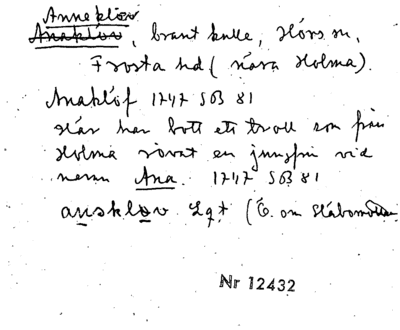 Anneklöv
Anaklöv, brant kulle, Hörs sn,
Frosta hd (nära Holma).
Anaklöf 1747 SB 81
Här har bott ett troll som från
Holma rövat en jungfru vid
namn Ana. 1747 SB 81
ansklov Lgt (Ö. om Slåbomöllan
Nr 12432